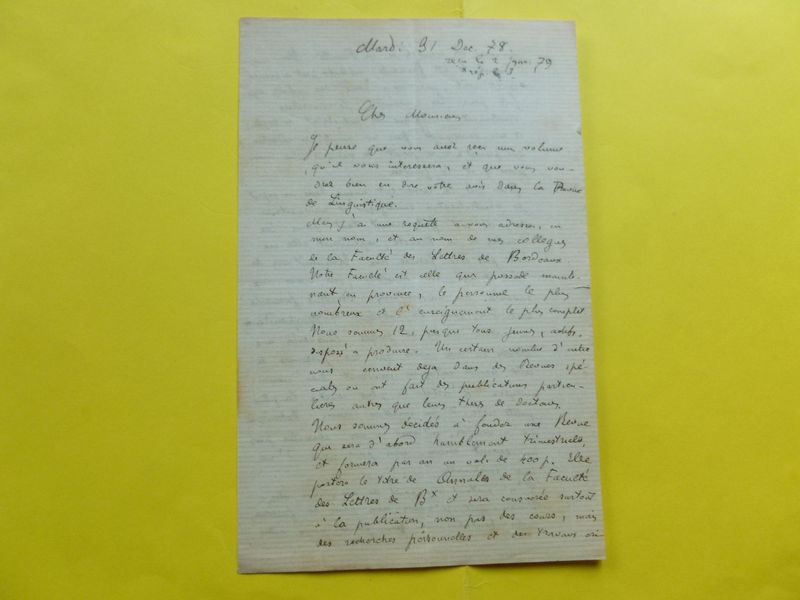 Mardi 31 Dec. 78.
recu le 2 janv. 79
rép. le 3
Cher Monsieur
Je pense que vous avez reçu mon volume
qu'il vous interessera, et que vous vou-
drez bien en dire votre avis dans la Revue
de Linguistique.
Mais j'ai une requête à vous adresser, en
mon nom, et au nom de mes collegues
de la Faculté des Lettres de Bordeaux
Notre Faculté est celle qui possede mainte-
nant, en province, le personnel le plus
nombreux et l'enseignement le plus complet
Nous sommes 12, presque tous jeunes, actifs,
disposés a produire. Un certain nombre d'entre
nous ecrivent deja dans des Revues spé-
ciales ou ont fait des publications particu-
lieres autres que leurs theses de doctorat.
Nous sommes décidés à fonder une Revue
qui sera d'abord humblement trimestrielle,
et formera par an un vol. de 400 p. Elle
portera le titre de Annales de la Faculté
des Lettres de Bx et sera consacrée surtout
à la publication, non pas des cours, mais
des recherches personnelles et des travaux ori-